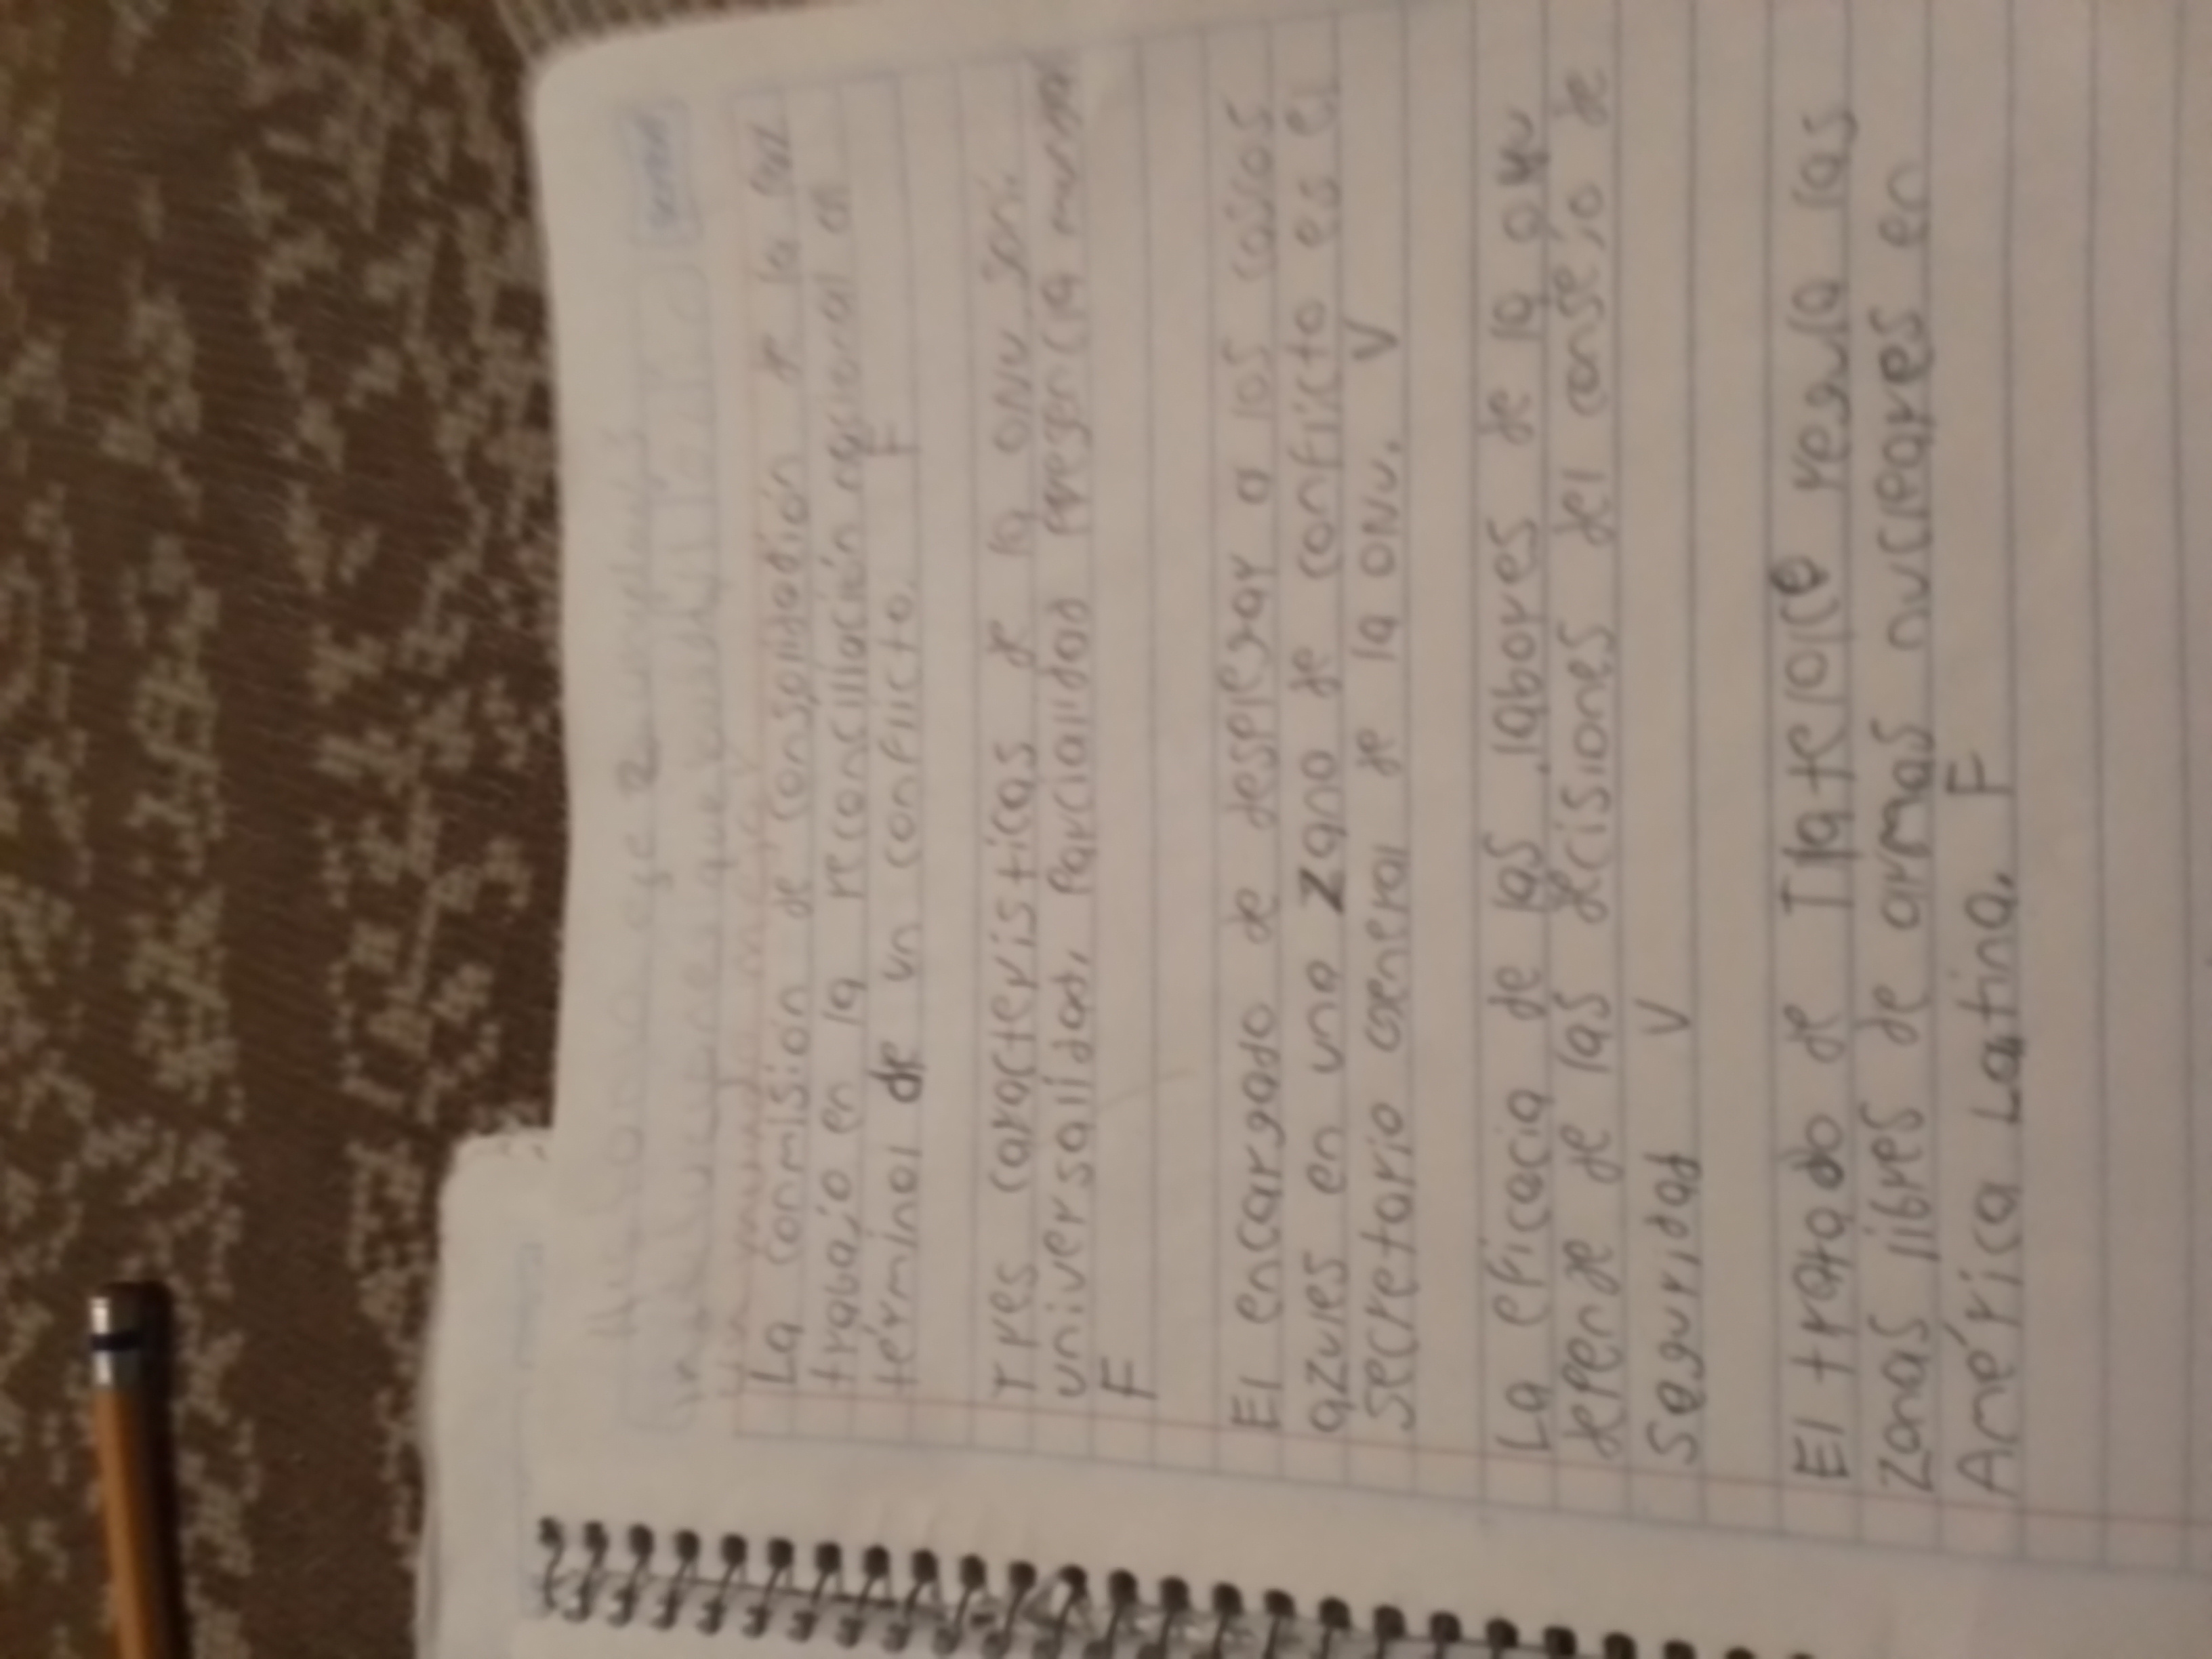 La conmisión de consolidación de la paz
trabajo en la reconciliación nacional al
términol de un conflicto. F
Tres características de la ONU son:
universalidad, Parcialidad presencia
F
El encargado de desplegar a los cascos
azules en una zano de conflicto es el
secretario General de la ONU. V
La eficacia de las labores de la onu
depende de las decisiones del consejo de
seguridad V
El tratado de Tlatelolco regula las
zonas libres de armas nucleares en
América Latina. F